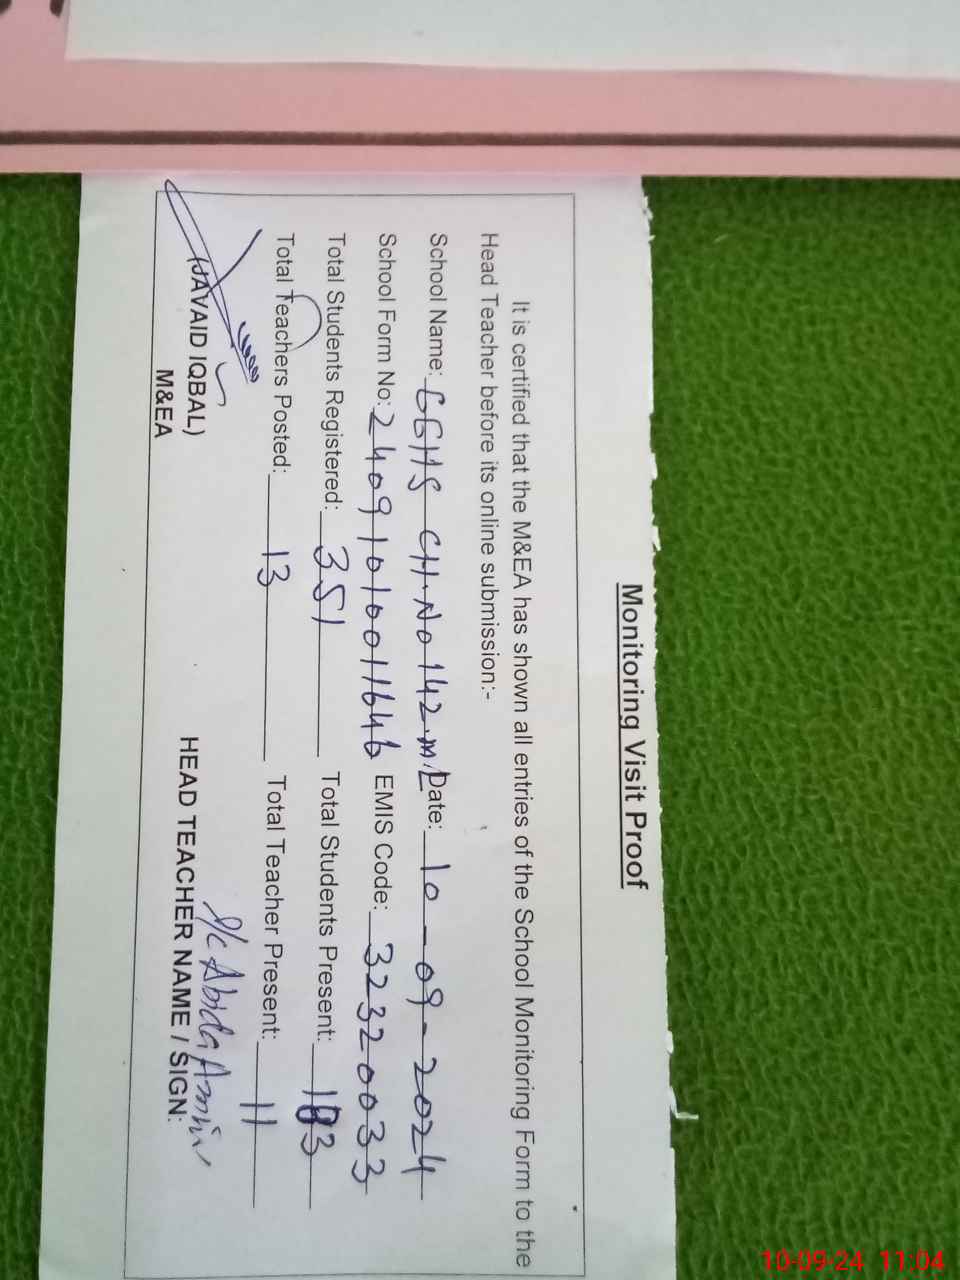 Monitoring Visit Proof
It is certified that the M&EA has shown all entries of the School Monitoring Form to the
Head Teacher before its online submission:-
School Name: GGHS CH.No 142.m/L Date: 10-09-2024
School Form No: 24091010011646 EMIS Code: 32320033
Total Students Registered: 351 Total Students Present: 183
Total Teachers Posted: 13 Total Teacher Present: 11
I/c Abida Amin
(JAVAID IQBAL) HEAD TEACHER NAME / SIGN:
M&EA
10-09-24 11:04